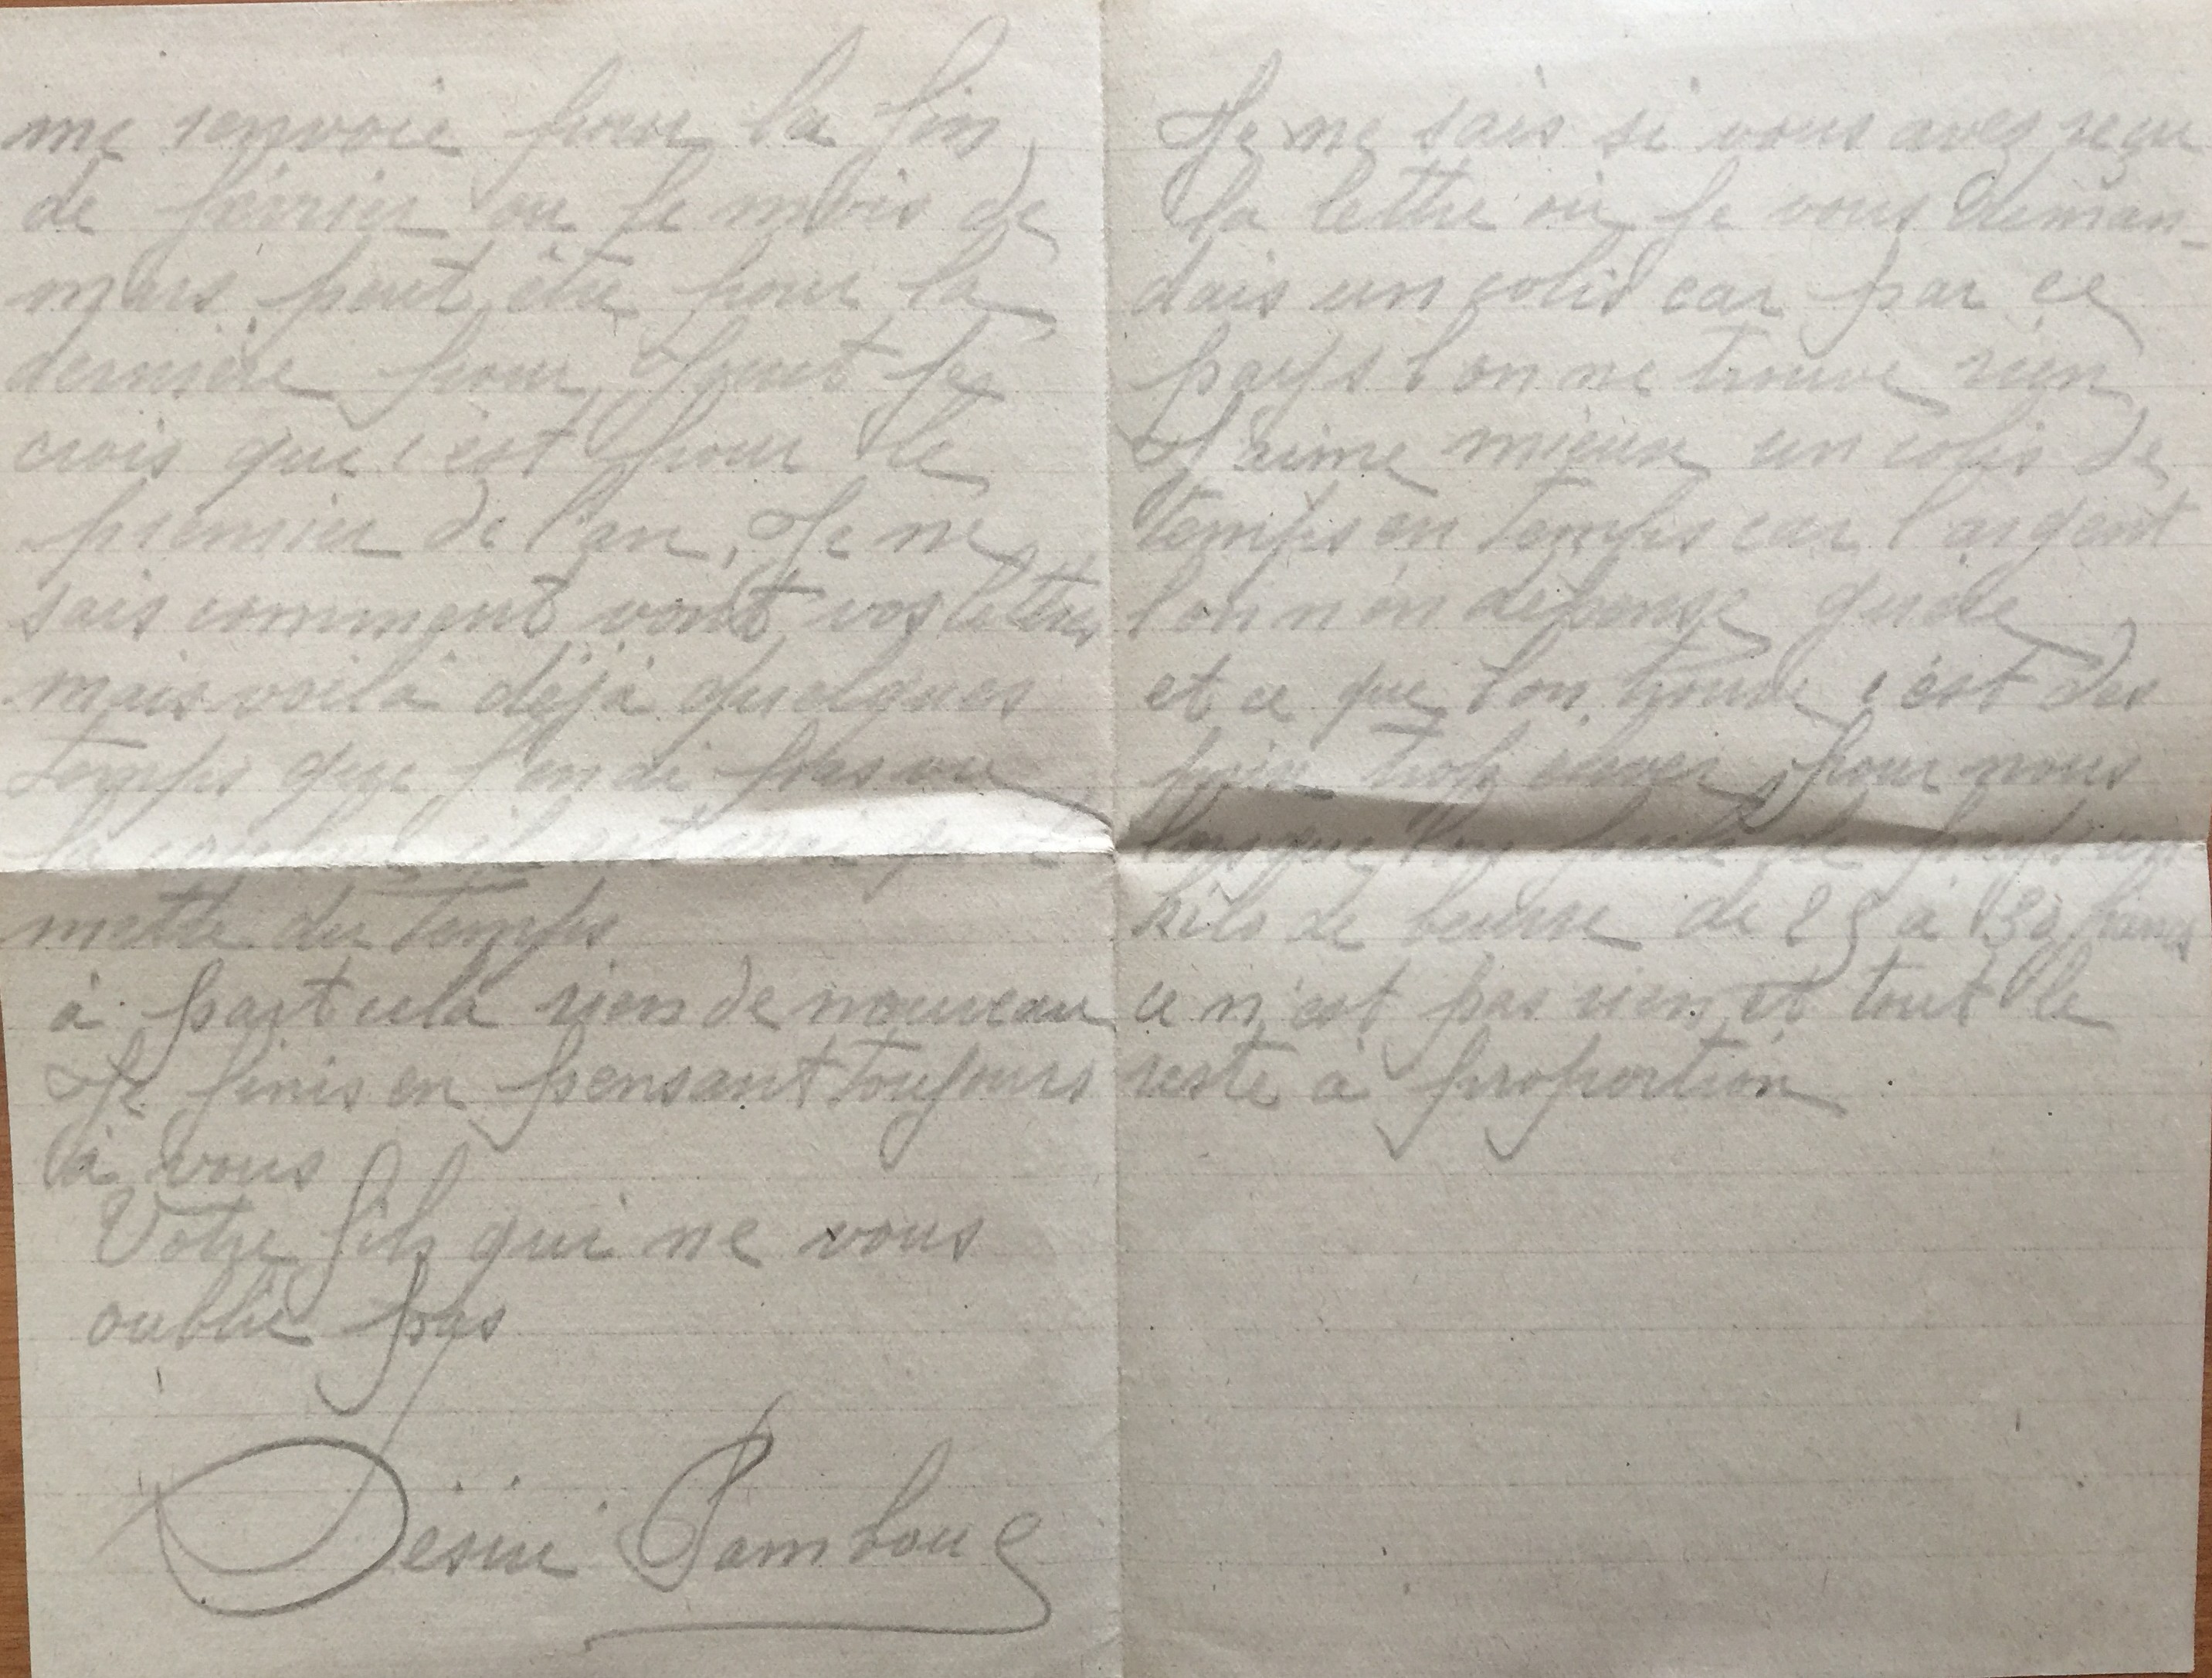 me renvoie pour la fin
de février ou le mois de
mars peut être pour la
dernière pour Jouet je
crois que c'est pour le
premier de l'an, Je ne
sais comment vont vos lettres
mais voilà déjà quelques
temps que j'en ai pas vu
la couleur il est vrai qu'il
mette du temps
à part cela rien de nouveau
Je finis en pensant toujours
à vous
Votre fils qui ne vous
oublie pas
Désiré
Je ne sais si vous avez reçu
la lettre où je vous deman-
dais un colis car par ce
pays l'on ne trouve rien
J'aime mieux un colis de
temps en temps car l'argent
l'on n'en dépense guère
et ce que l'on trouve c'est des
prix trop élevés pour nous
lorsque l'on parle de payé un
kilo de beurre de 25 à 30 francs
ce n'est pas rien et tout le
reste à proportion